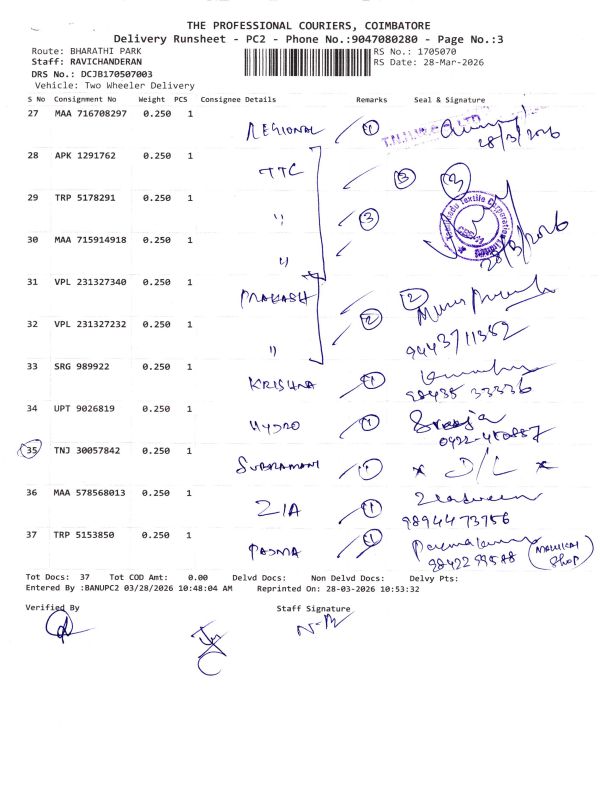 THE PROFESSIONAL COURIERS, COIMBATORE
Delivery Runsheet - PC2 - Phone No.:9047080280 - Page No.:3
Route: BHARATHI PARK RS No.: 1705070
Staff: RAVICHANDERAN RS Date: 28-Mar-2026
DRS No.: DCJB170507003
Vehicle: Two Wheeler Delivery
S No Consignment No Weight PCS Consignee Details Remarks Seal & Signature
27 MAA 716708297 0.250 1
REGIONAL 1 28/3/2026
28 APK 1291762 0.250 1
TTC 3 3
29 TRP 5178291 0.250 1
" 3
30 MAA 715914918 0.250 1
" 28/3/2026
31 VPL 231327340 0.250 1
PRAKASH 2
32 VPL 231327232 0.250 1 2
" 9443711352
33 SRG 989922 0.250 1
KRISHNA 1
34 UPT 9026819 0.250 1
HYDRO 1
35 TNJ 30057842 0.250 1
SUBRAMANI 1 * D/L *
36 MAA 578568013 0.250 1
ZIA 1
9894473756
37 TRP 5153850 0.250 1
PADMA 1 Shop
Tot Docs: 37 Tot COD Amt: 0.00 Delvd Docs: Non Delvd Docs: Delvy Pts:
Entered By :BANUPC2 03/28/2026 10:48:04 AM Reprinted On: 28-03-2026 10:53:32
Verified By Staff Signature